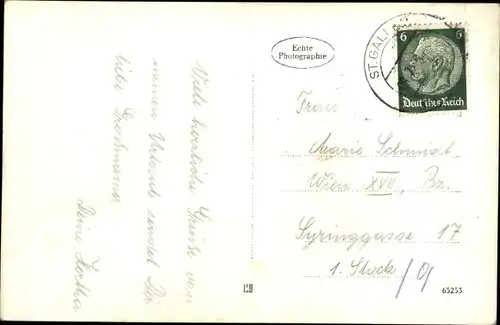 Viele herrliche Grüße von
meinem Urlaub sendet Dir
liebe Großmama
Deine Hertha
Echte
Photographie
ST. GALL
6 6
Deutsches Reich
Frau
Marie Schmidt
Wien XVII, Bz.
Syringgasse 17
1. Stock /9
65253